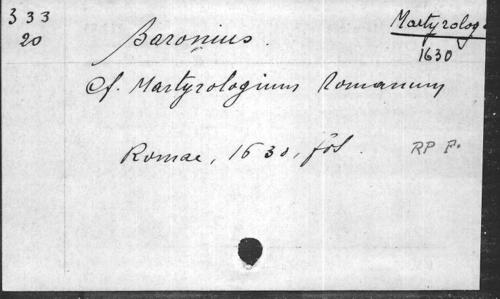 333
20
Baronius.
Martyrolog
1630
Cf. Martyrologium Romanum
Romae, 1630, fol.
RP P.